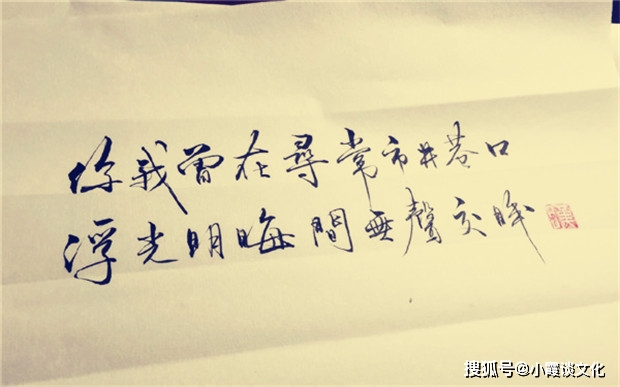 你我曾在尋常市井巷口
浮光明晦間無聲交眸
搜狐号@小霞谈文化